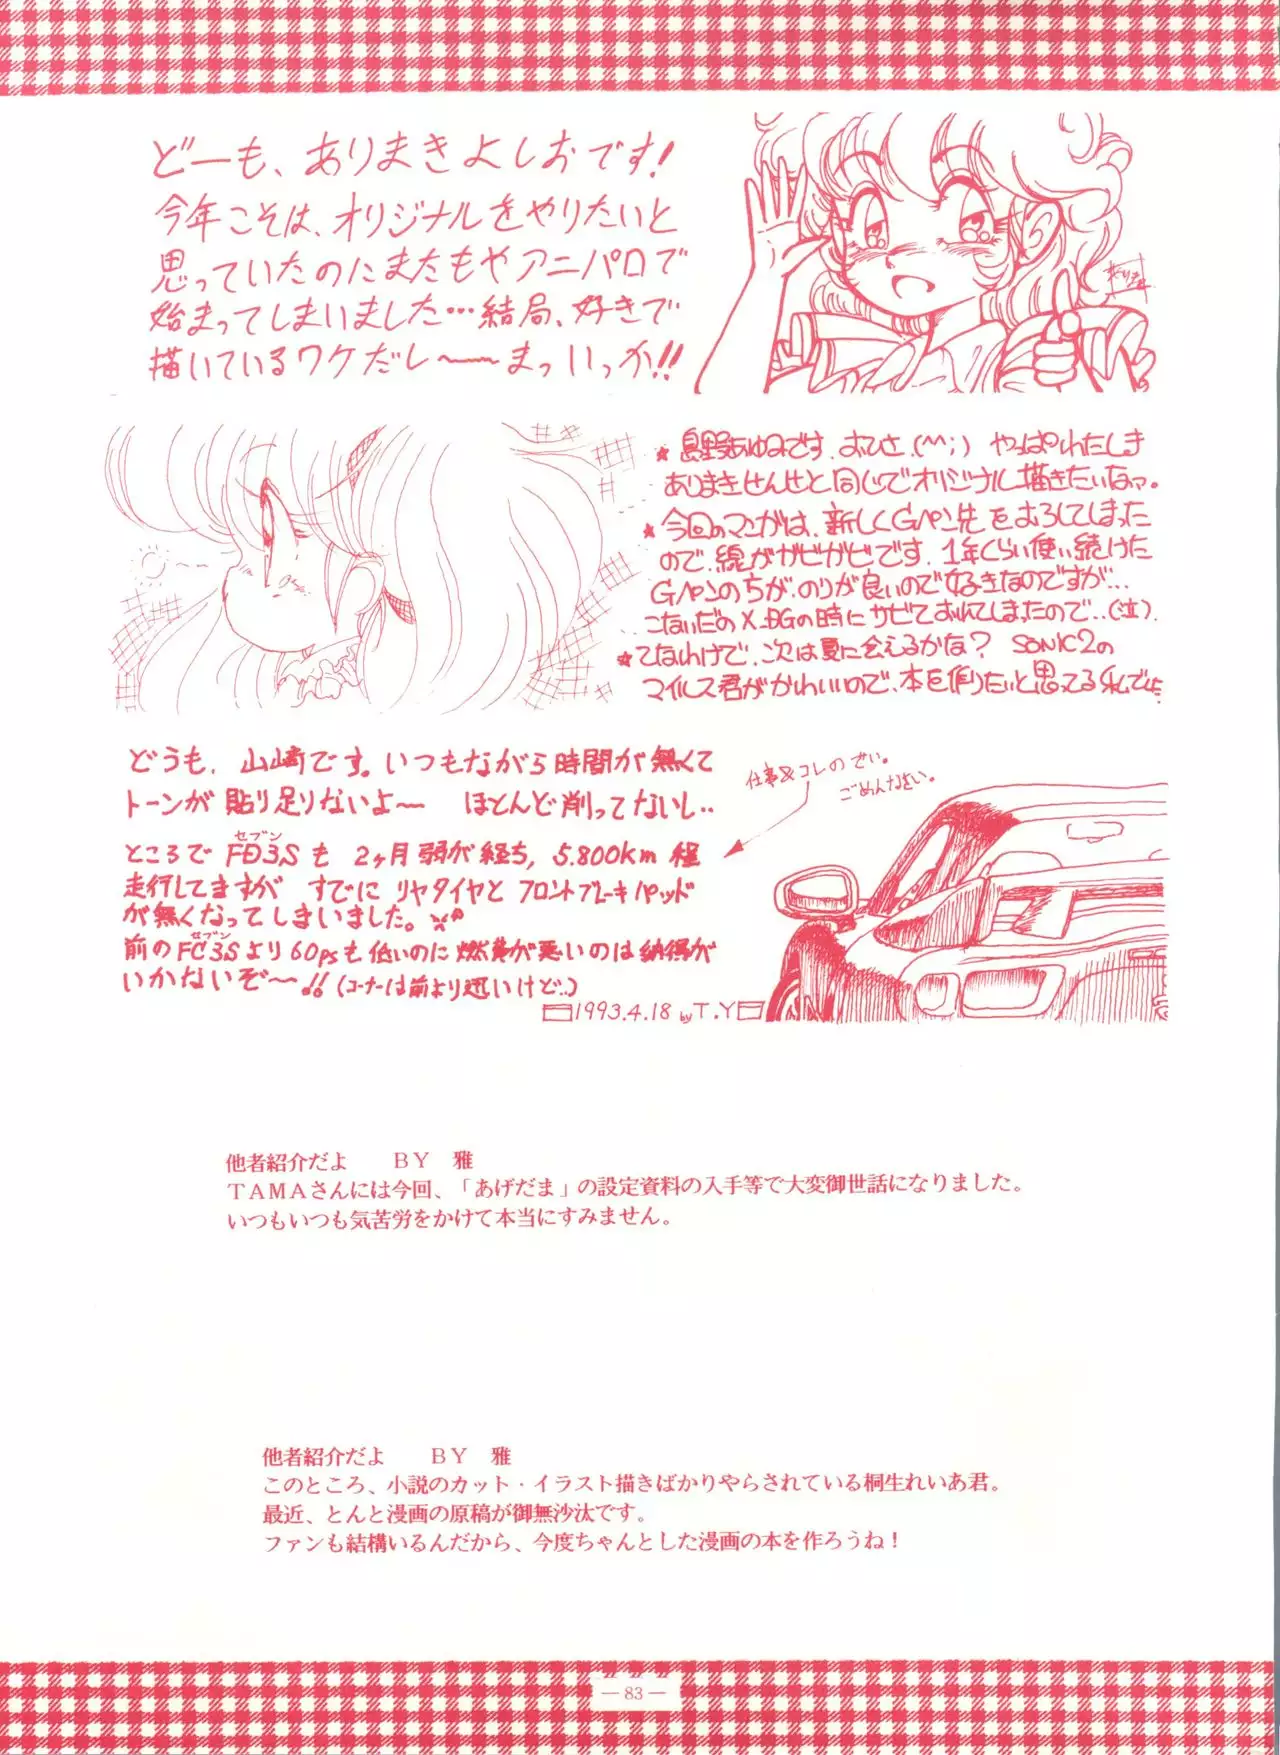 どーも、ありまきよしおです!
今年こそは、オリジナルをやりたいと
思っていたのにまたもやアニパロで
始まってしまいました…結局、好きで
描いているワケだし〜〜まっいっか!!
★息野あゆみです.おひさ.(^^;) やっぱわたしも
ありまきせんせと同じでオリジナル描きたいなァ。
★今回のマンガは、新しくGペン先をおろしてしまった
ので、線がガビガビです.1年くらい使い続けた
Gペンのもちが、のりが良いので好きなのですが…
こないだのX-BGの時にサビておれてしまったので…(泣).
★てなわけで、次は夏に会えるかな? SONIC2の
マイルス君がかわいいので、本を作りたいと思ってる私でした
どうも、山崎です。いつもながら時間が無くて
トーンが貼り足りないよ〜 ほとんど削ってないし..
仕事&コレのせい。
ごめんなさい。
セブン
ところで FD3Sも 2ヶ月弱が経ち, 5.800km 程
走行してますが すでに リヤタイヤと フロントブレーキパッド
が無くなってしまいました。
セブン
前のFC3Sより60psも低いのに燃費が悪いのは納得が
いかないぞ〜!!(コーナーは前より速いけど..)
1993.4.18 by T.Y
他者紹介だよ BY 雅
TAMAさんには今回、「あげだま」の設定資料の入手等で大変御世話になりました。
いつもいつも気苦労をかけて本当にすみません。
他者紹介だよ BY 雅
このところ、小説のカット・イラスト描きばかりやらされている桐生れいあ君。
最近、とんと漫画の原稿が御無沙汰です。
ファンも結構いるんだから、今度ちゃんとした漫画の本を作ろうね!
— 83 —